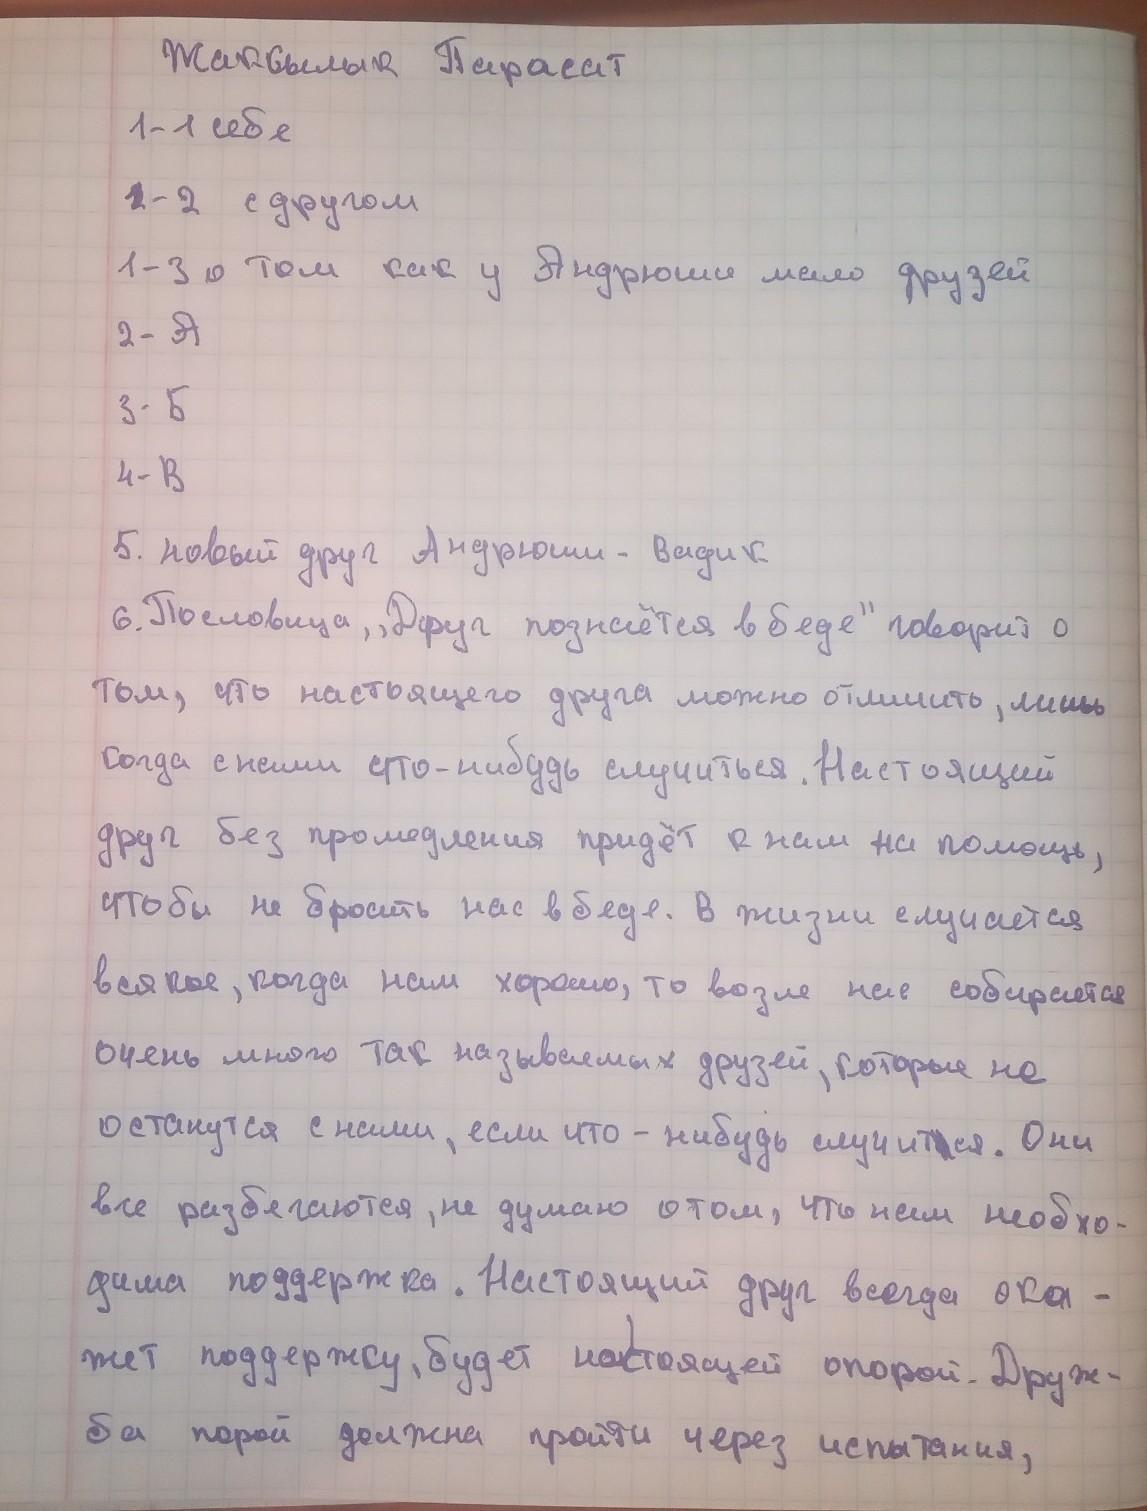 Жаксылык Парасат
1-1 себе
1-2 с другом
1-3 о том как у Андрюши мало друзей
2- А
3- Б
4- В
5. новый друг Андрюши - Вадик
6. Пословица ,,Друг познаётся в беде" говорит о
том, что настоящего друга можно отличить, лишь
когда с нами что-нибудь случиться. Настоящий
друг без промедления придёт к нам на помощь,
чтобы не бросить нас в беде. В жизни случается
всякое, когда нам хорошо, то возле нас собирается
очень много так называемых друзей, которые не
останутся с нами, если что-нибудь случится. Они
все разбегаются, не думаю о том, что нам необхо-
дима поддержка. Настоящий друг всегда ока-
жет поддержку, будет настоящей опорой. Друж-
ба порой должна пройти через испытания,